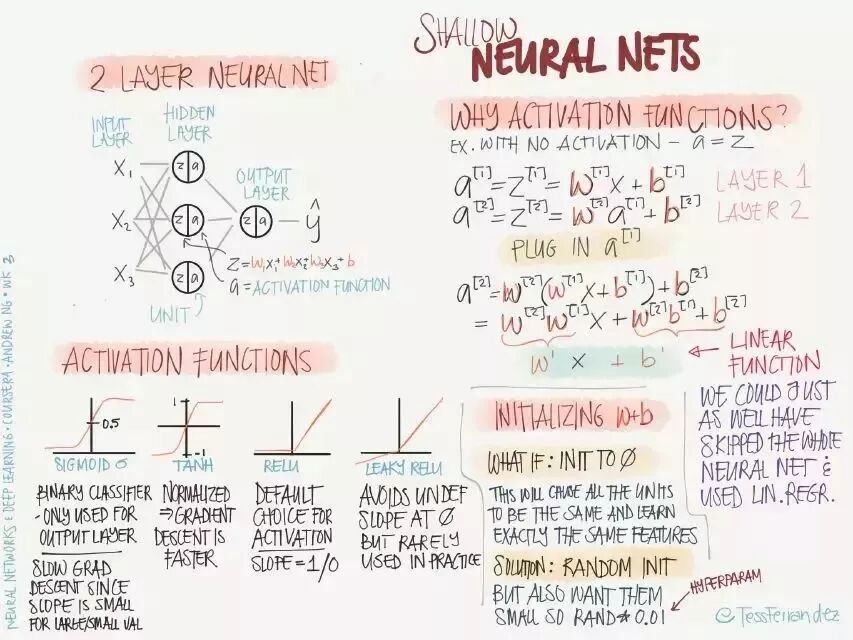 SHALLOW
NEURAL NETS
2 LAYER NEURAL NET
INPUT
LAYER
HIDDEN
LAYER
OUTPUT
LAYER
X₁
X₂
X₃
z a
z a
z a
z a
ŷ
z=w₁x₁+w₂x₂+w₃x₃+b
a=ACTIVATION FUNCTION
UNIT
WHY ACTIVATION FUNCTIONS?
EX. WITH NO ACTIVATION – a = z
a^[1]=z^[1]=w^[1]x+b^[1] LAYER 1
a^[2]=z^[2]=w^[2]a^[1]+b^[2] LAYER 2
PLUG IN a^[1]
a^[2]=w^[2](w^[1]x+b^[1])+b^[2]
=w^[2]w^[1]x+w^[2]b^[1]+b^[2]
w' x + b'
LINEAR
FUNCTION
WE COULD JUST
AS WELL HAVE
SKIPPED THE WHOLE
NEURAL NET &
USED LIN. REGR.
ACTIVATION FUNCTIONS
0.5
SIGMOID σ
BINARY CLASSIFIER
- ONLY USED FOR
OUTPUT LAYER
SLOW GRAD
DESCENT SINCE
SLOPE IS SMALL
FOR LARGE/SMALL VAL
1
-1
TANH
NORMALIZED
⇒ GRADIENT
DESCENT IS
FASTER
RELU
DEFAULT
CHOICE FOR
ACTIVATION
SLOPE = 1/0
LEAKY RELU
AVOIDS UNDEF
SLOPE AT 0
BUT RARELY
USED IN PRACTICE
INITIALIZING w+b
WHAT IF: INIT TO 0
THIS WILL CAUSE ALL THE UNITS
TO BE THE SAME AND LEARN
EXACTLY THE SAME FEATURES
SOLUTION: RANDOM INIT
BUT ALSO WANT THEM
SMALL SO RAND * 0.01
HYPERPARAM
@TessFerrandez
NEURAL NETWORKS & DEEP LEARNING · COURSERA · ANDREW NG · WK 3